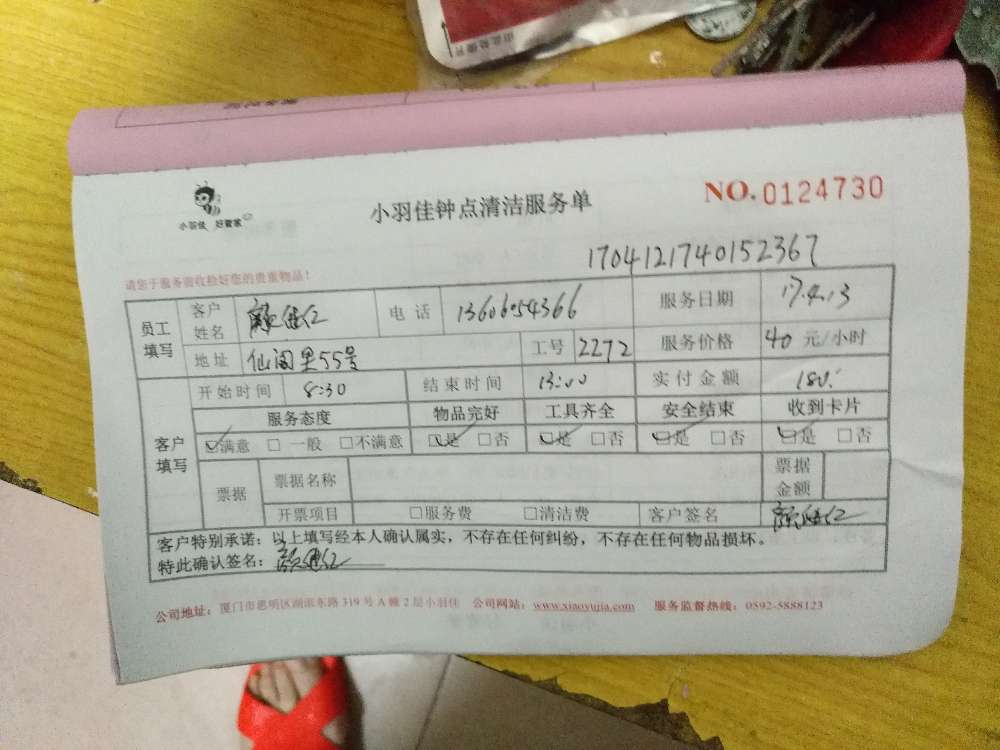 小羽佳 好管家
小羽佳钟点清洁服务单
NO.0124730
1704121740152367
请您于服务前收捡好您的贵重物品!
员工填写 客户姓名 电话 13606054366 服务日期 17.4.13
地址 仙阁里55号 工号 2272 服务价格 40 元/小时
客户填写 开始时间 8:30 结束时间 13:00 实付金额 180.
服务态度 物品完好 工具齐全 安全结束 收到卡片
☑满意 □一般 □不满意 ☑是 □否 ☑是 □否 ☑是 □否 ☑是 □否
票据 票据名称 票据金额
开票项目 □服务费 □清洁费 客户签名
客户特别承诺:以上填写经本人确认属实,不存在任何纠纷,不存在任何物品损坏。
特此确认签名:
公司地址:厦门市思明区湖滨东路319号A幢2层小羽佳 公司网站:www.xiaoyujia.com 服务监督热线:0592-5888123